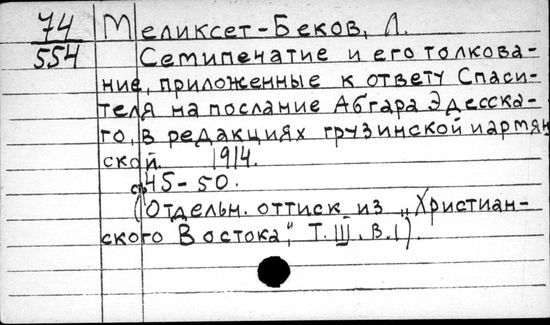 74 Меликсет-Беков, Л.
554 Семипечатие и его толкова-
ние, приложенные к ответу Спаси-
теля на послание Абгара Эдесска-
го, в редакциях грузинской и армян
ской. 1914.
с. 45-50.
(Отдельн. оттиск из „Христиан-
ского Востока", Т. III. В. 1).